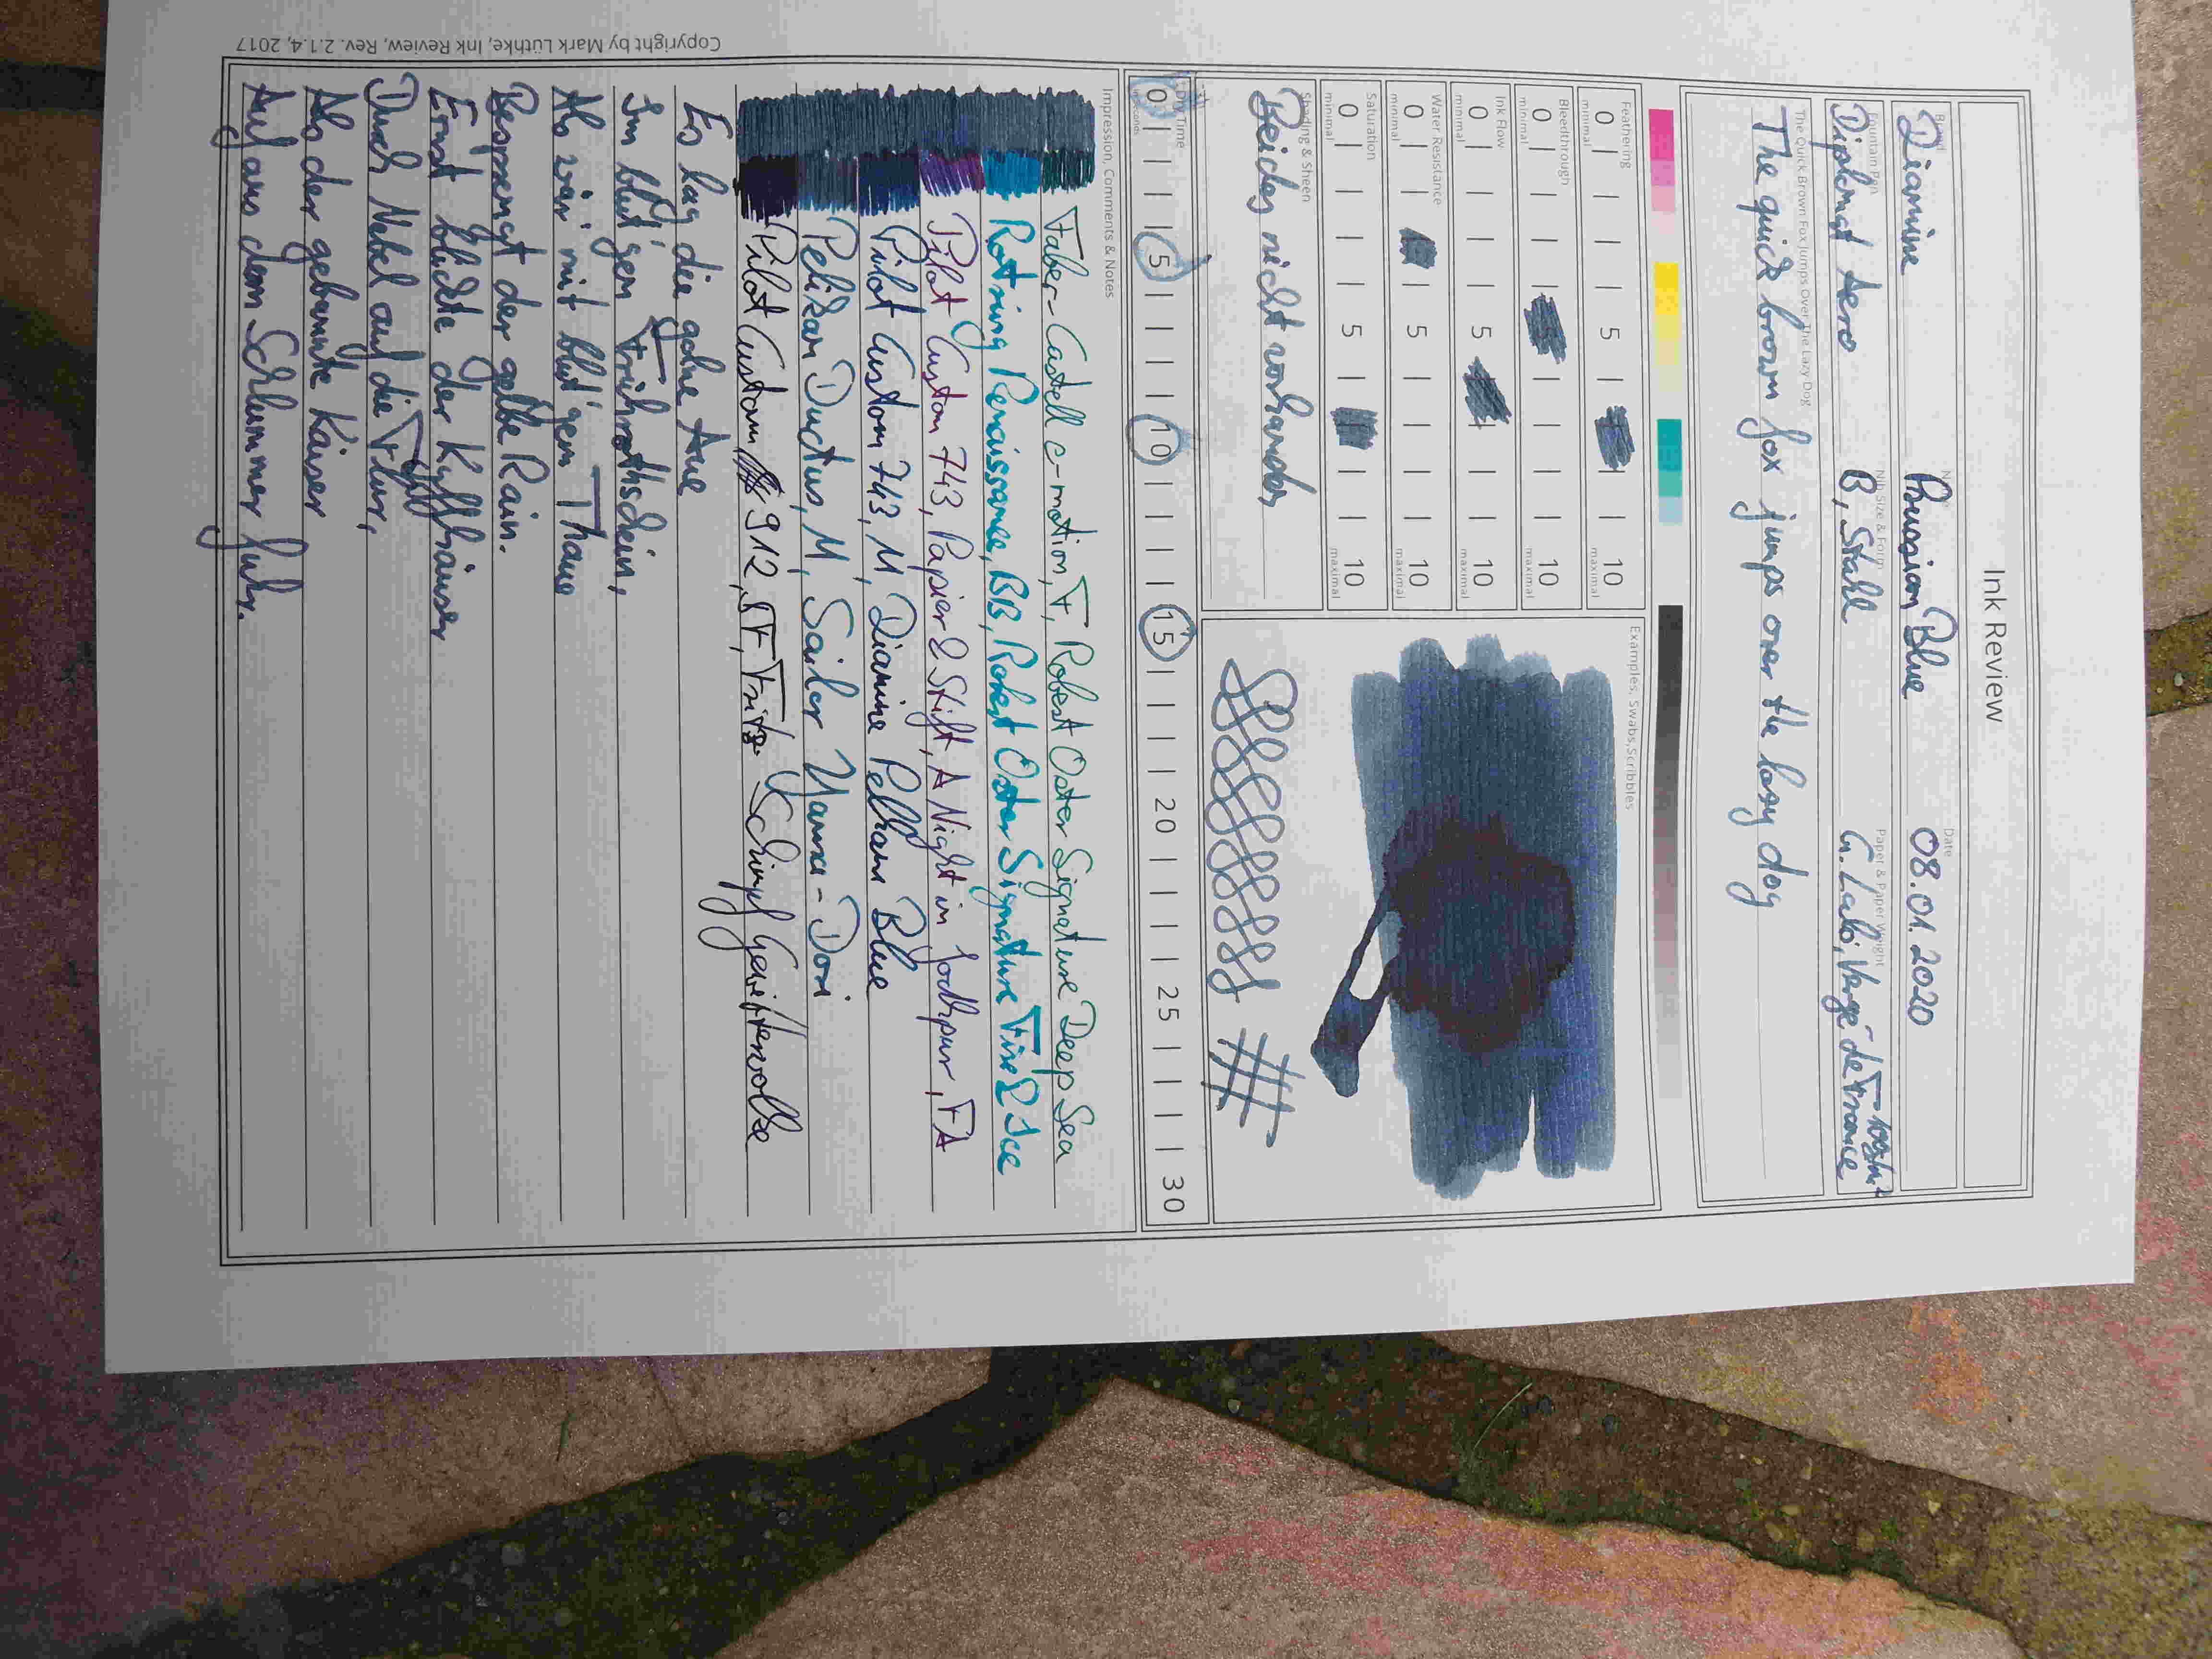 Ink Review
Brand
Diamine
Prussian Blue
Date
08.01.2020
Fountain Pen
Diplomat Aero
Nib Size & Form
B, Stahl
Paper & Paper Weight
G. Lalo, Vergé de France
The Quick Brown Fox Jumps Over The Lazy Dog
The quick brown fox jumps over the lazy dog
Feathering
0 5 10
minimal maximal
Bleedthrough
0 10
minimal maximal
Ink Flow
0 5 10
minimal maximal
Water Resistance
0 5 10
minimal maximal
Saturation
0 5 10
minimal maximal
Shading & Sheen
Beides nicht vorhanden
Examples, Swabs, Scribbles
Dry Time
0 5 10 15 20 25 30
seconds
Impression, Comments & Notes
Faber-Castell e-motion, F, Robert Oster Signature Deep Sea
Rotring Renaissance, BB, Robert Oster Signature Fire & Ice
Pilot Custom 743, Papier & Stift, A Night in Jodhpur, FA
Pilot Custom 743, M, Diamine Pelham Blue
Pelikan Ductus, M, Sailor Yama-Dori
Pilot Custom 912, SF, Fritz Schimpf
Es lag die goldne Aue
Im blut'gen Frührothschein,
Als wär mit blut'gem Thaue
Besprengt der gelbe Rain.
Ernst blickte der Kyffhäuser
Durch Nebel auf die Flur,
Als der gebannte Kaiser
Auf aus dem Schlummer fuhr.
Copyright by Mark Lüthke, Ink Review, Rev. 2.1.4, 2017